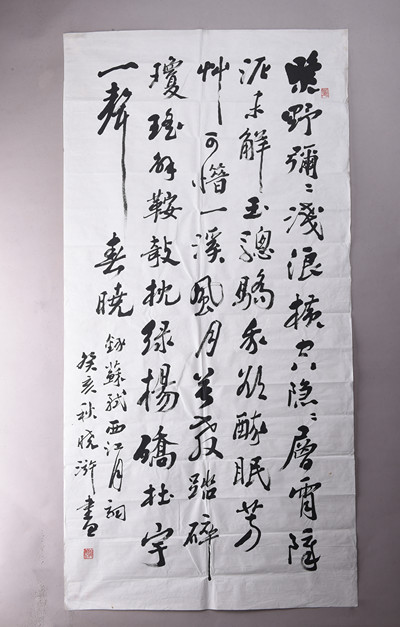 照野彌彌淺浪橫空隐隐層霄障
泥未解玉驄驕我欲醉眠芳
艸可惜一溪風月莫教踏碎
瓊瑤解鞍攲枕绿楊橋杜宇
一聲春曉
錄蘇軾西江月詞
癸亥秋曉滸書